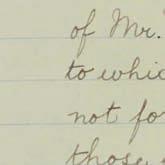 of Mr.
to whic
not for
those